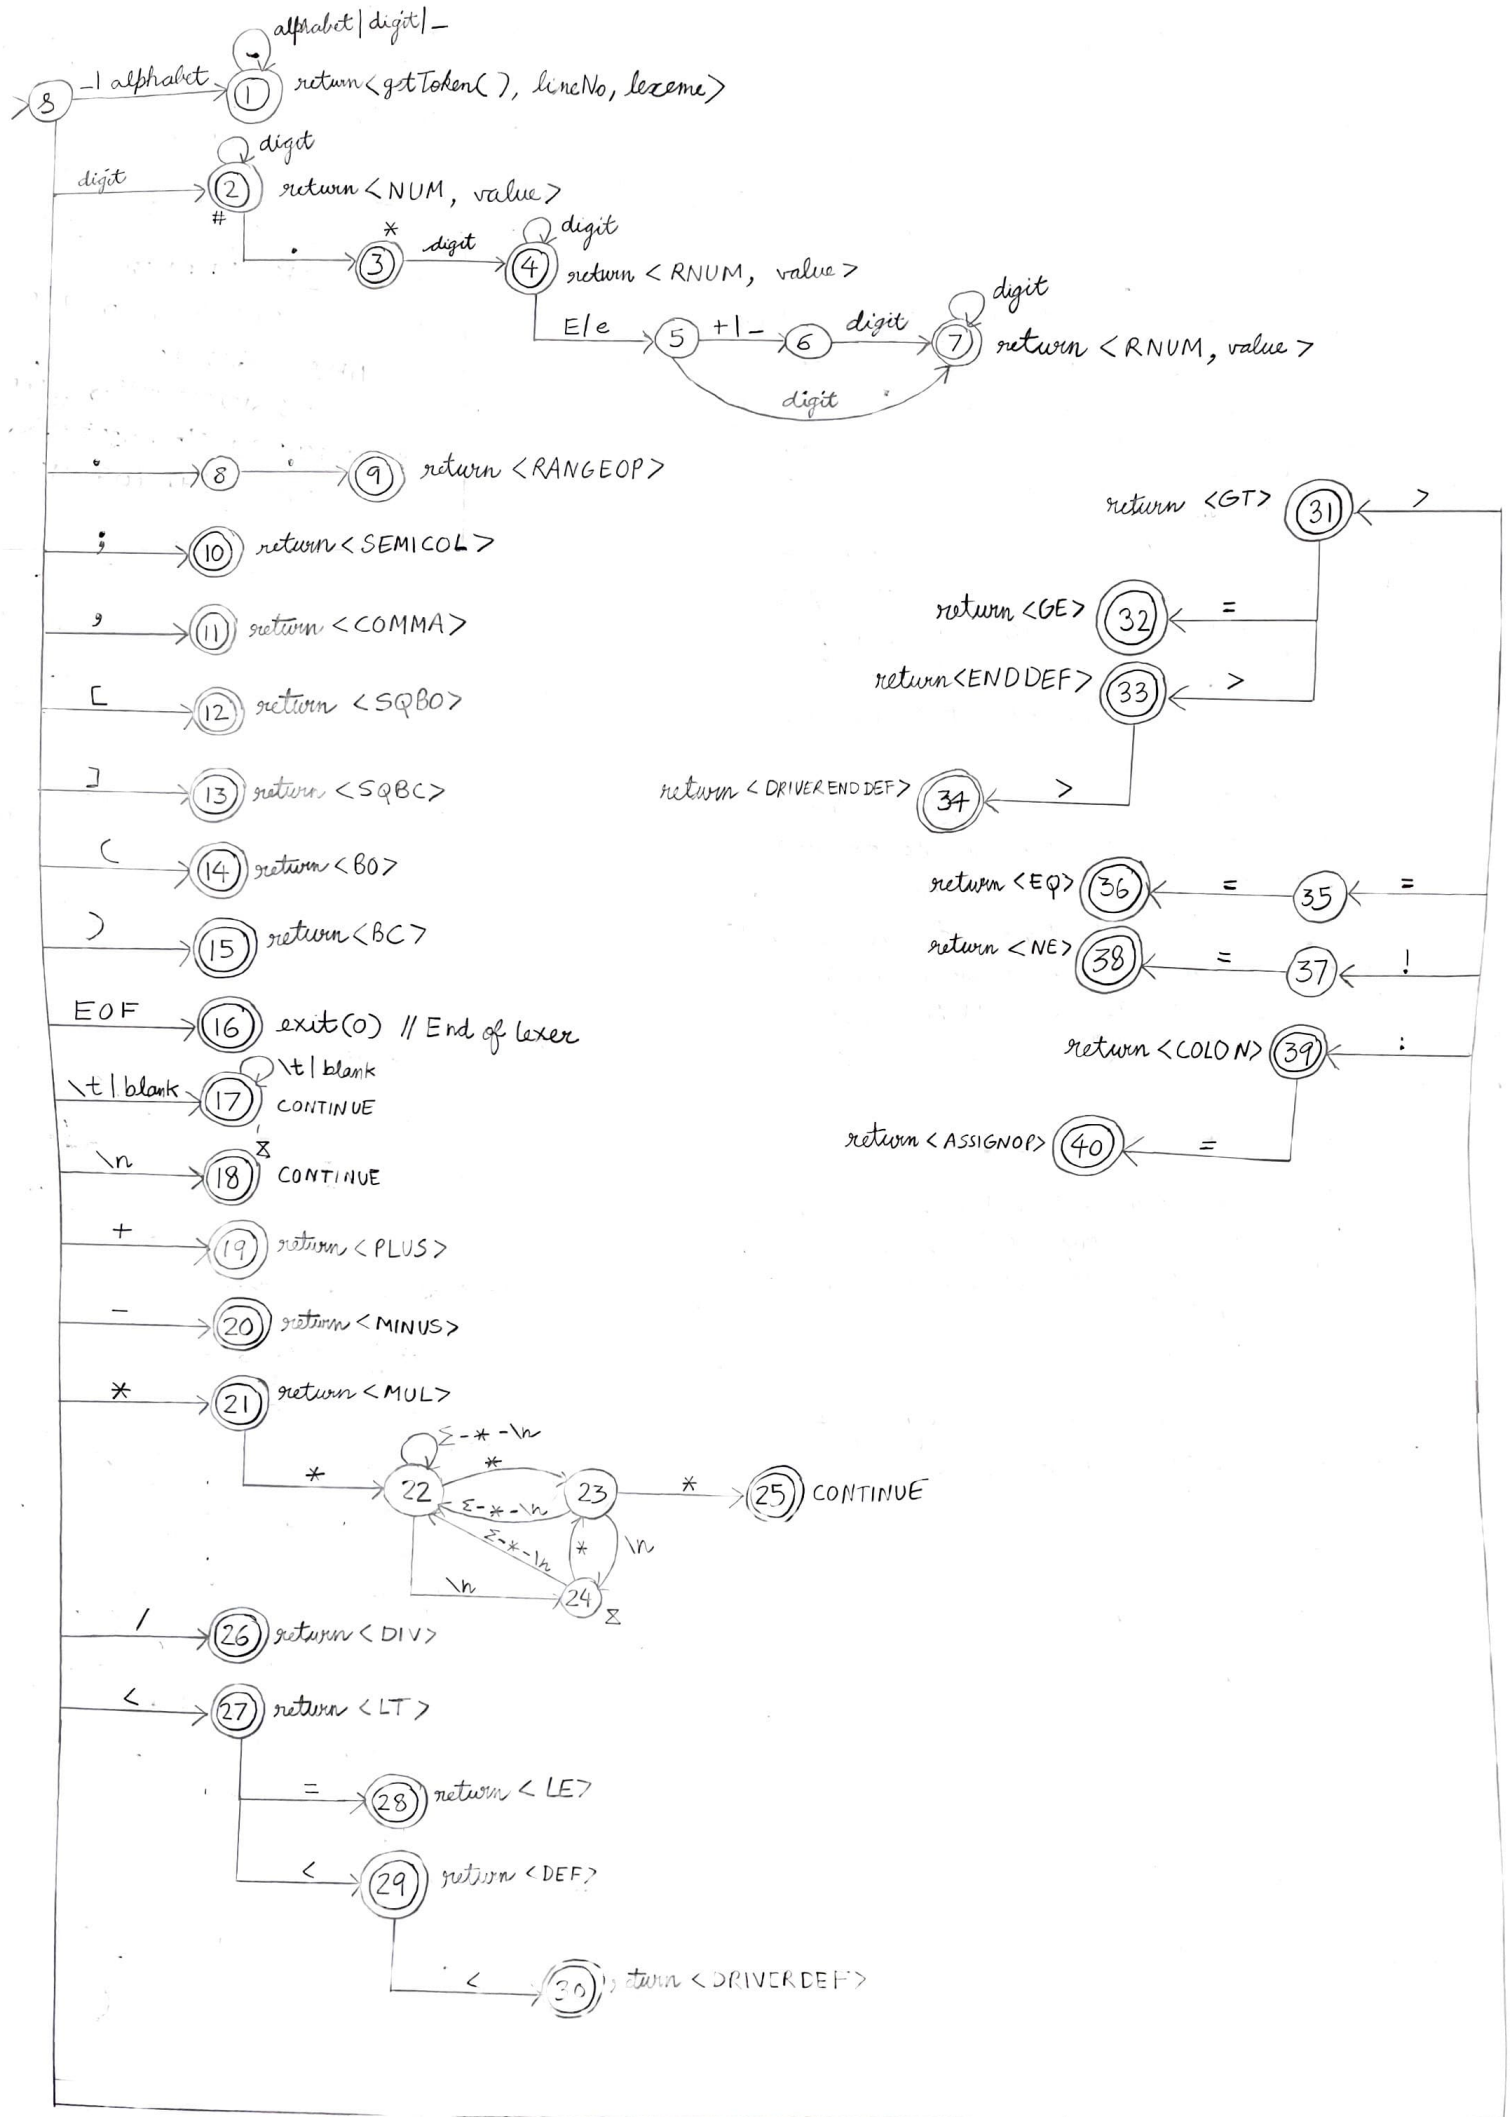 alphabet|digit|_
S _| alphabet 1 return<getToken(), lineNo, lexeme>
digit
digit 2 return <NUM, value>
#
. 3 * digit 4 digit return < RNUM, value >
E/e 5 +|- 6 digit 7 digit return < RNUM, value >
digit
. 8 . 9 return <RANGEOP>
; 10 return <SEMICOL>
, 11 return <COMMA>
[ 12 return <SQBO>
] 13 return <SQBC>
( 14 return <BO>
) 15 return <BC>
EOF 16 exit(0) // End of lexer
\t|blank
\t|blank 17 CONTINUE
\n 18 CONTINUE
+ 19 return <PLUS>
- 20 return <MINUS>
* 21 return <MUL>
Σ-*-\n
* 22 * 23 * 25 CONTINUE
Σ-*-\n
Σ-*-\n * \n
\n 24
/ 26 return <DIV>
< 27 return <LT>
= 28 return <LE>
< 29 return <DEF>
< 30 return <DRIVERDEF>
return <GT> 31 >
return <GE> 32 =
return <ENDDEF> 33 >
return <DRIVERENDDEF> 34 >
return <EQ> 36 = 35 =
return <NE> 38 = 37 !
return <COLON> 39 :
return <ASSIGNOP> 40 =